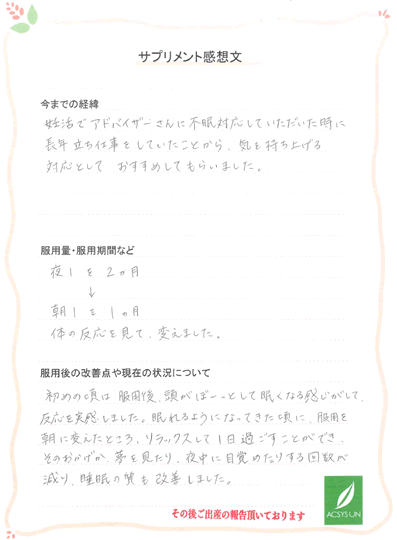 サプリメント感想文
今までの経緯
妊活でアドバイザーさんに不眠対応していただいた時に
長年立ち仕事をしていたことから、気を持ち上げる
対応として おすすめしてもらいました。
服用量・服用期間など
夜1を2ヵ月
↓
朝1を1ヵ月
体の反応を見て、変えました。
服用後の改善点や現在の状況について
初めの頃は服用後、頭がぼーっとして眠くなる感じがして、
反応を実感しました。眠れるようになってきた頃に、服用を
朝に変えたところ、リラックスして1日過ごすことができ、
そのおかげか、夢を見たり、夜中に目覚めたりする回数が
減り、睡眠の質も改善しました。
その後ご出産の報告頂いております
ACSYSUN